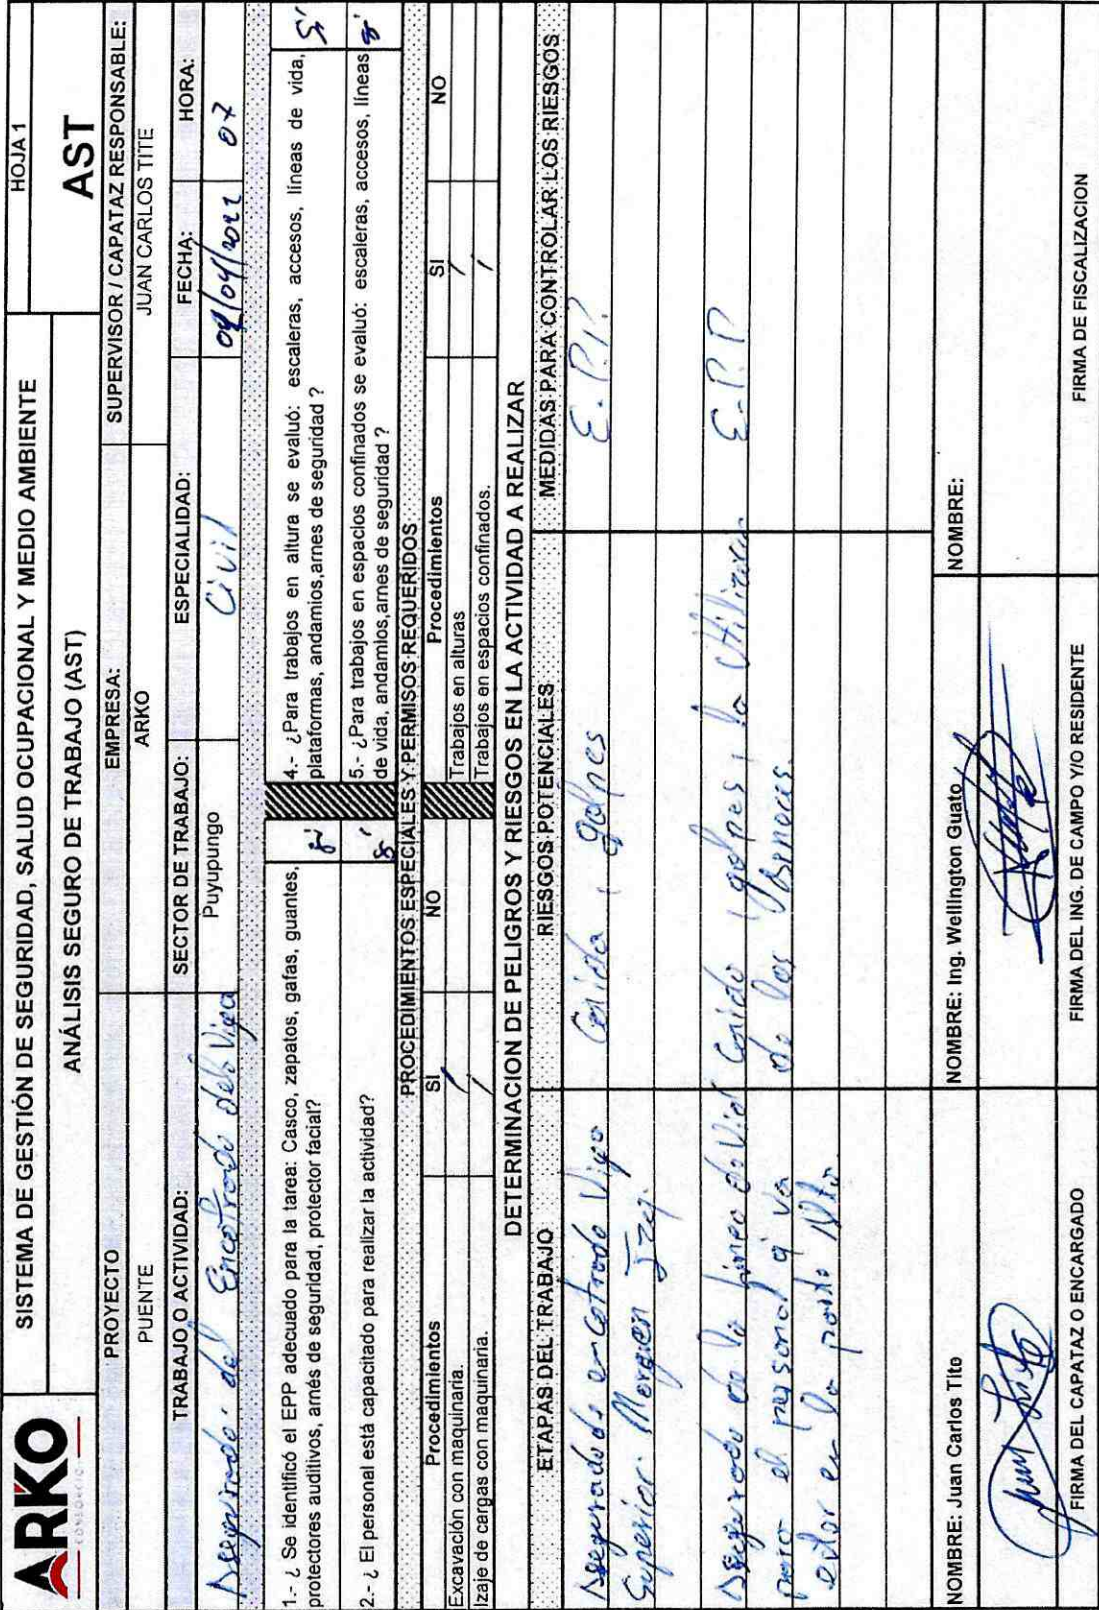 ARKO
CONSORCIO
SISTEMA DE GESTIÓN DE SEGURIDAD, SALUD OCUPACIONAL Y MEDIO AMBIENTE
HOJA 1
ANÁLISIS SEGURO DE TRABAJO (AST)
AST
PROYECTO
EMPRESA:
SUPERVISOR / CAPATAZ RESPONSABLE:
PUENTE
ARKO
JUAN CARLOS TITE
TRABAJO O ACTIVIDAD:
SECTOR DE TRABAJO:
ESPECIALIDAD:
FECHA:
HORA:
Asegurado del Encofrado de la Viga
Puyupungo
Civil
/04/2022
07
1.- ¿ Se identificó el EPP adecuado para la tarea: Casco, zapatos, gafas, guantes,
protectores auditivos, arnés de seguridad, protector facial?
si
4.- ¿Para trabajos en altura se evaluó: escaleras, accesos, líneas de vida,
plataformas, andamios,arnes de seguridad ?
si
2.- ¿ El personal está capacitado para realizar la actividad?
si
5.- ¿Para trabajos en espacios confinados se evaluó: escaleras, accesos, líneas
de vida, andamios,arnes de seguridad ?
si
PROCEDIMIENTOS ESPECIALES Y PERMISOS REQUERIDOS
Procedimientos
SI
NO
Procedimientos
SI
NO
Excavación con maquinaria.
/
Trabajos en alturas
/
Izaje de cargas con maquinaria.
/
Trabajos en espacios confinados.
/
DETERMINACION DE PELIGROS Y RIESGOS EN LA ACTIVIDAD A REALIZAR
ETAPAS DEL TRABAJO
RIESGOS POTENCIALES
MEDIDAS PARA CONTROLAR LOS RIESGOS
Asegurado de encofrado Viga
Caida, golpes
E.P.P.
Superior Margen Izq.
Asegurado de la linea de Vida
Caida, golpes, la Utilizacion
E.P.P
para el personal q' va
de las
estar en la parte Alta
NOMBRE: Juan Carlos Tite
NOMBRE: Ing. Wellington Guato
NOMBRE:
FIRMA DEL CAPATAZ O ENCARGADO
FIRMA DEL ING. DE CAMPO Y/O RESIDENTE
FIRMA DE FISCALIZACION